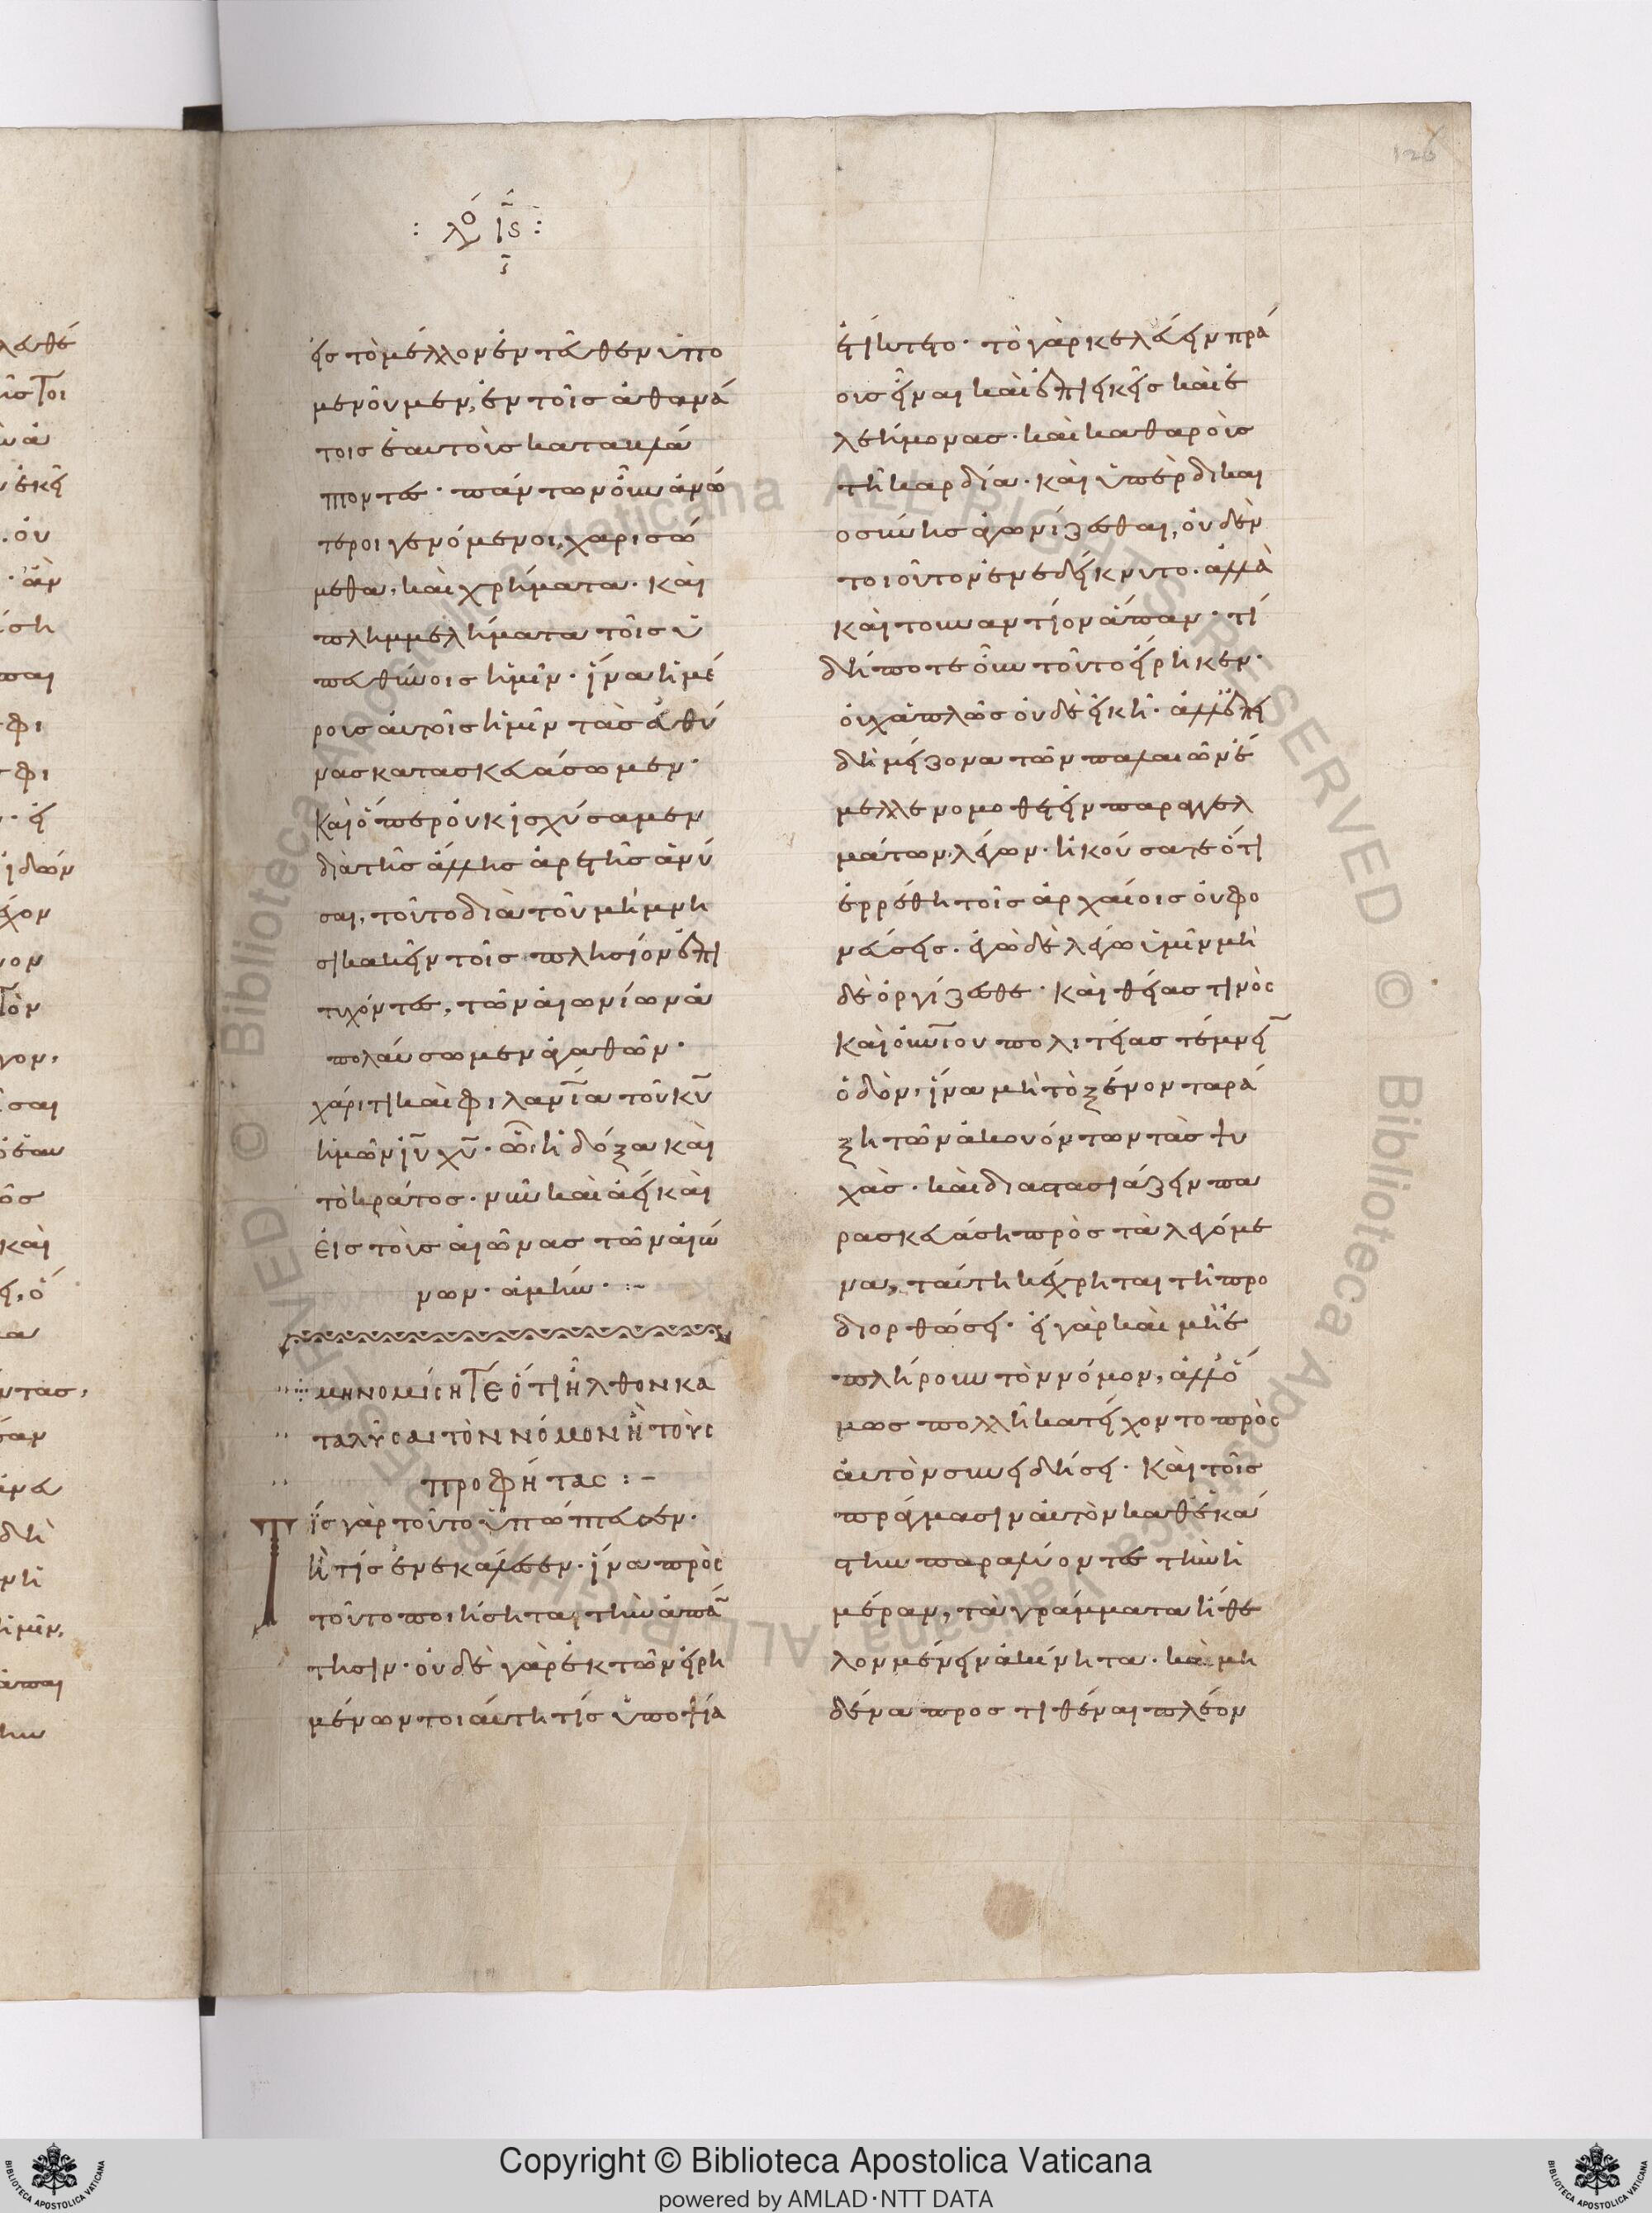 126
: λο ιϛ :
εἰς τὸ μέλλον ἐνταῦθεν ὑπο
μένουμεν, ἐν τοῖς ἀθανά
τοις ἑαυτοὺς κατακλά
πτοντες· πάντων οὖν ἀνώ
τεροι γενόμενοι, χαρισώ
μεθα, καὶ χρήματα· καὶ
πλημμελήματα τοῖς ὑ
πευθύνοις ἡμῖν· ἵνα ἡμέ
ρους αὐτοῖς ἡμῖν τὰς εὐθύ
νας κατασκευάσωμεν·
Καὶ ὅπερ οὐκ ἰσχύσαμεν
διὰ τῆς ἄλλης ἀρετῆς ἀνύ
σαι, τοῦτο διὰ τοῦ μὴ μνη
σικακεῖν τοῖς πλησίον ἐπι
τυχόντες, τῶν αἰωνίων ἀ
πολαύσωμεν ἀγαθῶν·
χάριτι καὶ φιλανῖα τοῦ κῦ
ἡμῶν ἰῦ χῦ· ὧ ἡ δόξα καὶ
τὸ κράτος· νῦν καὶ ἀεὶ καὶ
εἰς τοὺς αἰῶνας τῶν αἰώ
νων· ἀμήν· :~
ΜΗ ΝΟΜΙCΗΤΕ ὍΤΙ ἮΛΘΟΝ ΚΑ
ΤΑΛῦCΑΙ ΤὸΝ ΝόΜΟΝ Ἢ ΤΟὺC
ΠΡΟΦΉΤΑC : –
Τίς γὰρ τοῦτο ὑπώπτευσεν·
ἢ τίς ἐνεκάλεσεν· ἵνα πρὸς
τοῦτο ποιήσηται τὴν ἀπάν
τησιν· οὐδὲ γὰρ ἐκ τῶν εἰρη
μένων τοιαύτη τίς ὑποψία
ἐτίκτετο· τὸ γὰρ κελεύειν πρά
ους εἶναι καὶ ἐπιεικεῖς καὶ ἐ
λεήμονας· καὶ καθαροὺς
τῆ καρδία· καὶ ὑπὲρ δικαι
οσύνης ἀγωνίζεσθαι, οὐδὲν
τοιοῦτον ἐνεδείκνυτο· ἀλλὰ
καὶ τουναντίον ἅπαν· τί
δήποτε οὖν τοῦτο εἴρηκεν·
οὐχ ἁπλῶς οὐδὲ εἰκῆ· ἀλλ' ἐπεὶ
δὴ μείζονα τῶν παλαιῶν ἔ
μελλε νομοθετεῖν παραγγελ
μάτων, λέγων· ἠκούσατε ὅτι
ἐρρέθη τοῖς ἀρχαίοις οὐ φο
νεύσεις· ἐγὼ δὲ λέγω ὑμῖν μὴ
δὲ ὀργίζεσθε· καὶ θείας τινὸς
καὶ οὐνίου πολιτείας τέμνειν
ὁδόν, ἵνα μὴ τὸ ξένον ταρά
ξη τῶν ἀκουόντων τὰς ψυ
χάς· καὶ διαστασιάζειν πα
ρασκευάση πρὸς τὰ λεγόμε
να, ταύτη κέχρηται τῆ προ
διορθώσει· εἰ γὰρ καὶ μὴ ἐ
πλήρουν τὸν νόμον, ἀλλ' ὅ
μως πολλῆ κατείχοντο πρὸς
αὐτὸν συνειδήσει· καὶ τοῖς
πράγμασιν αὐτὸν καθ' ἑκά
στην παραλύοντες τὴν ἡ
μέραν, τὰ γράμματα ἤθε
λον μένειν ἀκίνητα· καὶ μη
δένα προστιθέναι πλέον
Copyright © Biblioteca Apostolica Vaticana
powered by AMLAD·NTT DATA